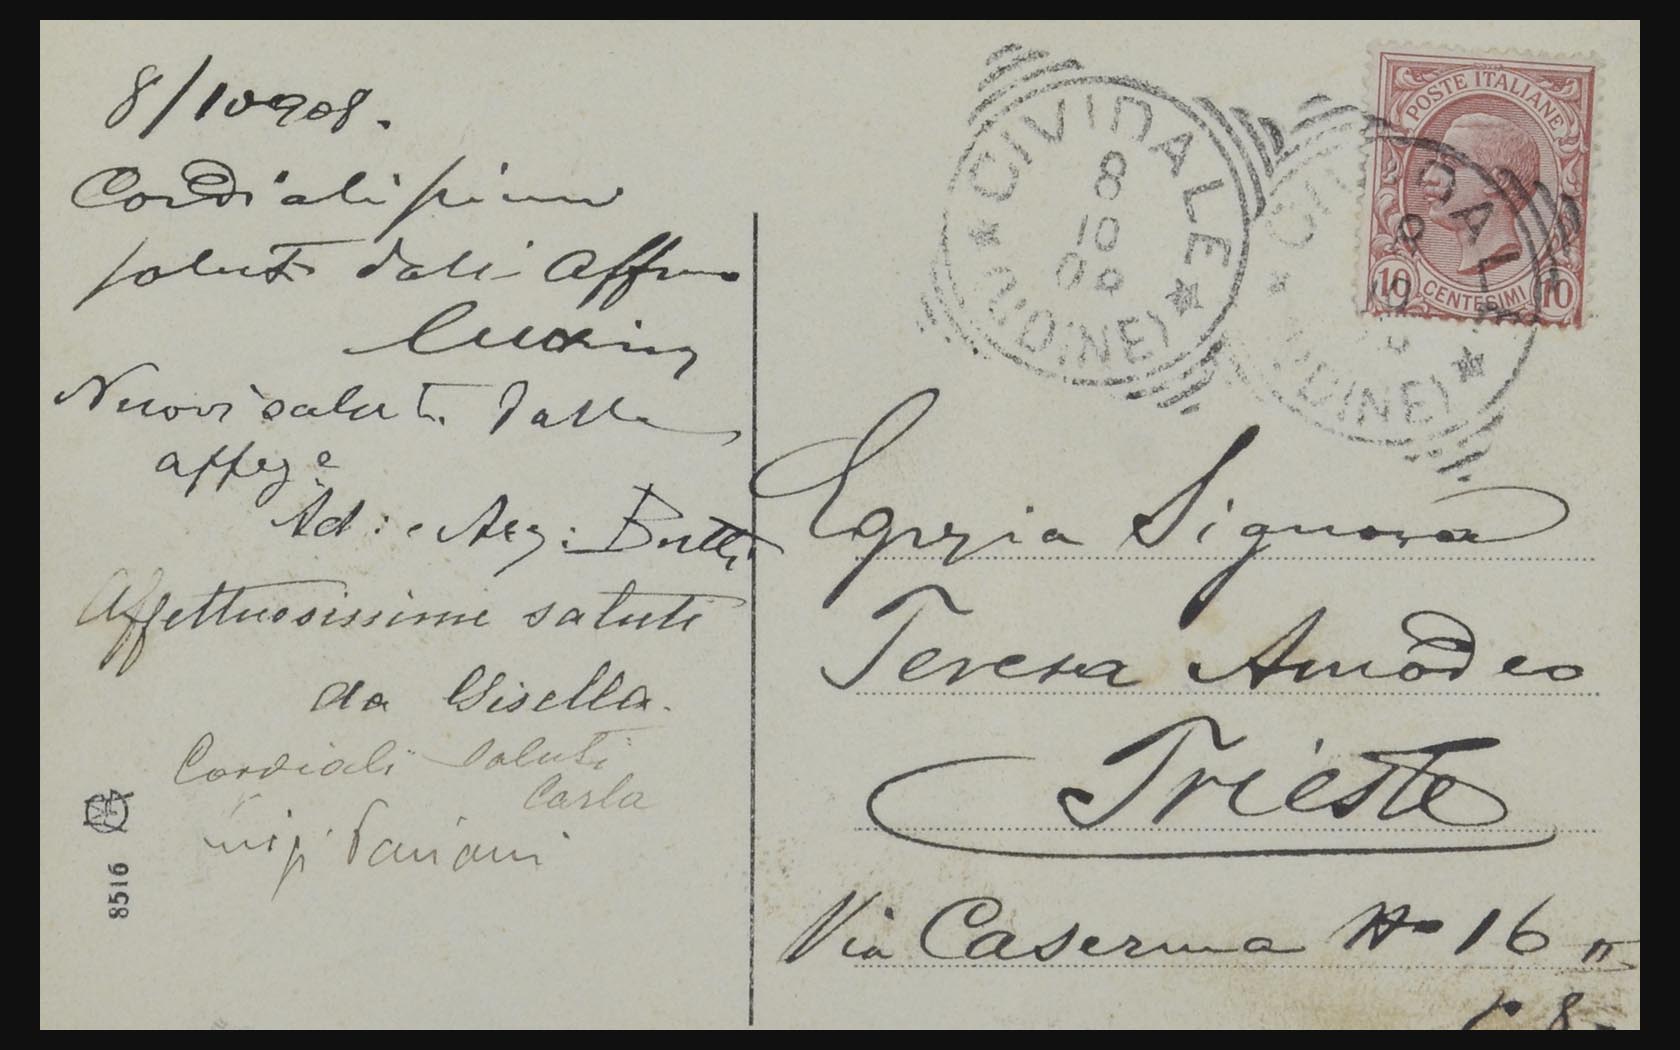 8/10 908.
Cordialissimi
saluti dall' Affmo
Nuovi saluti dalle
affeze
Ad: e Arg:
Affettuosissimi saluti
da Gisella.
Cordiali saluti
Carla
8516
CIVIDALE
8
10
08
(UDINE)
CIVIDALE
8
10
(UDINE)
POSTE ITALIANE
10 CENTESIMI 10
Egregia Signora
Teresa Amodeo
Trieste
Via Caserma No 16 II